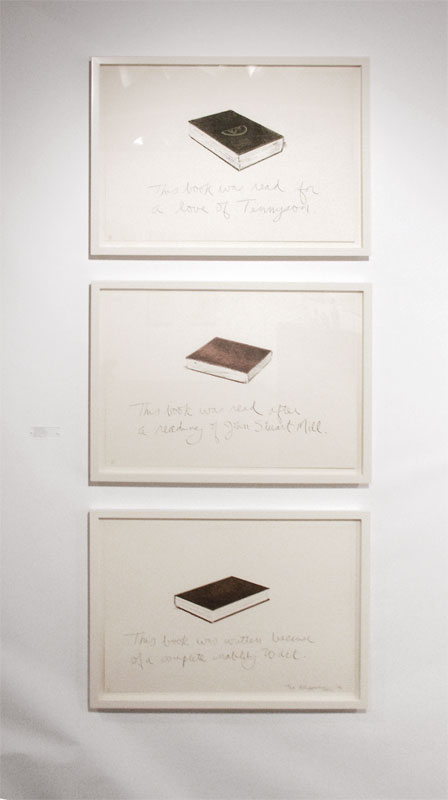 This book was read for
a love of Tennyson.
This book was read after
a reading of John Stuart Mill.
This book was written because
of a complete inability to act.